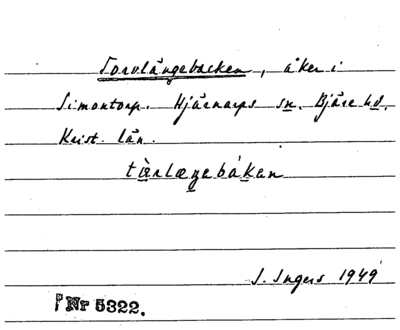 Torvlångebacken, åker i
Simontorp. Hjärnarps sn. Bjäre hd.
Krist. län.
I. Ingers 1949
Nr 5322.